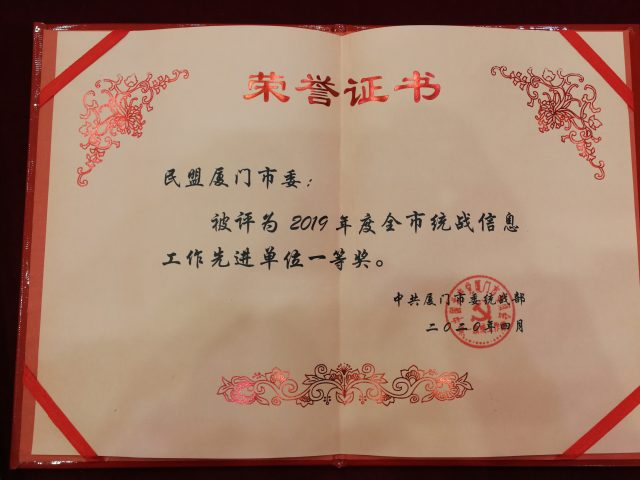 荣誉证书
民盟厦门市委：
被评为2019年度全市统战信息
工作先进单位一等奖。
中共厦门市委统战部
二〇二〇年四月